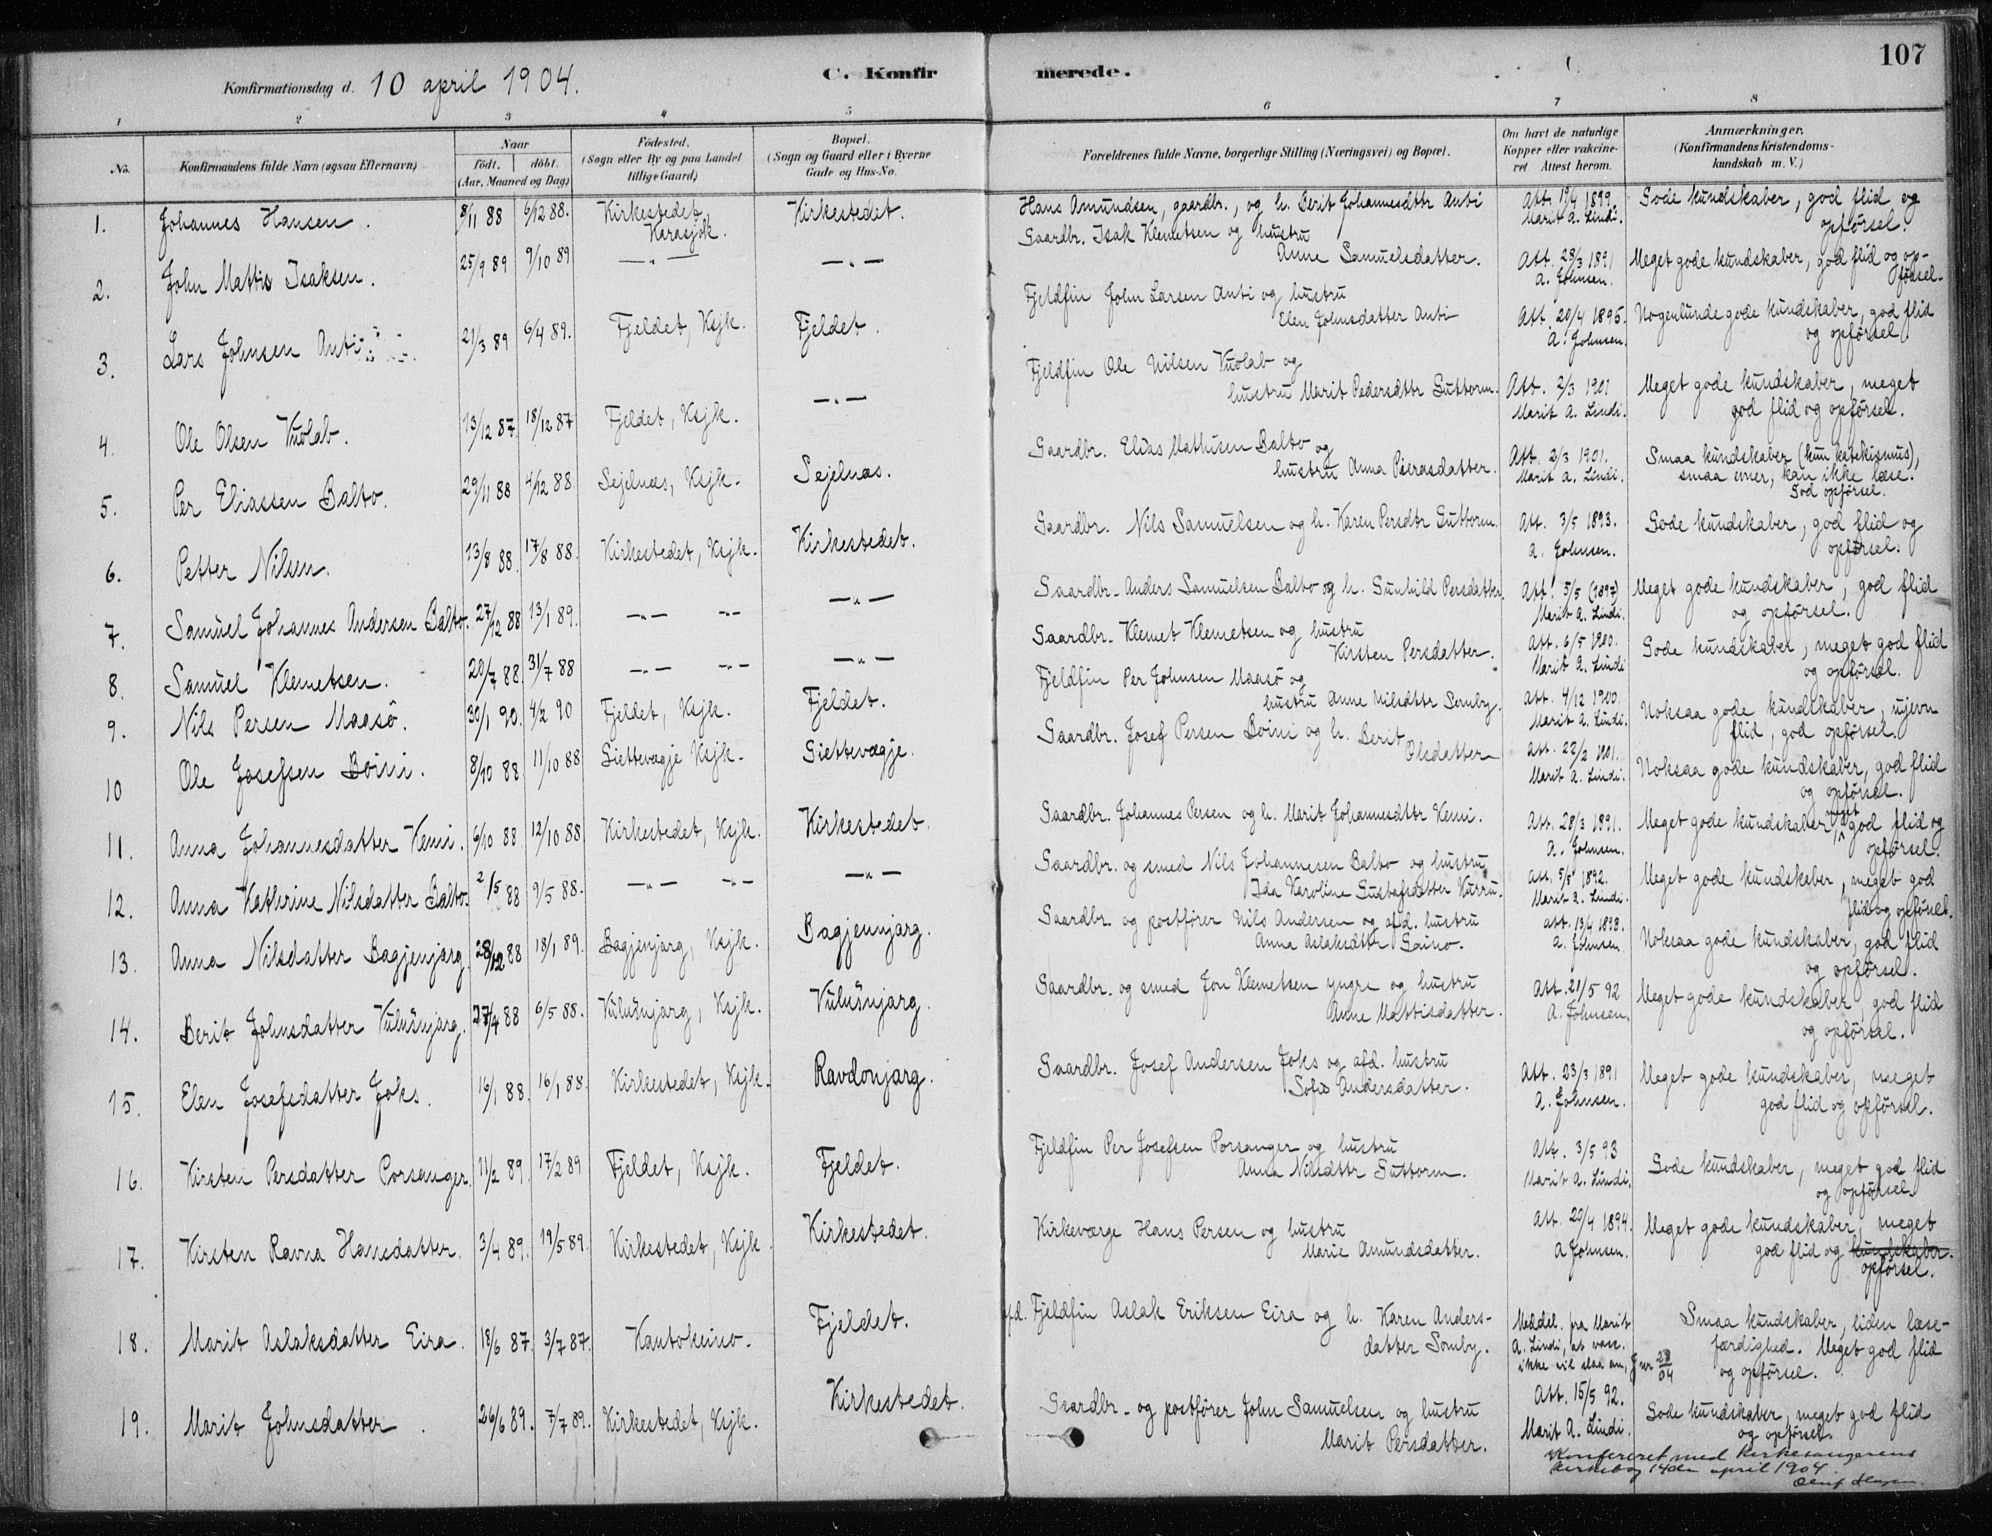 107
Konfirmationsdag d. 10 april 1904. C. Konfirmerede.
1 2 3 4 5 6 7 8
No. Konfirmandens fulde Navn (ogsaa Efternavn) Naar født. døbt. (Aar, Maaned og Dag) Fødested. (Sogn eller By og paa Landet tillige Gaard) Bopæl. (Sogn og Gaard eller i Byerne Gade og Hus-No. Forældrenes fulde Navne, borgerlige Stilling (Næringsvei) og Bopæl. Om havt de naturlige Kopper eller vakcineret Attest herom. Anmærkninger. (Konfirmandens Kristendomskundskab m. V.)
1. Johannes Hansen. 8/11 88 6/12 88. Kirkestedet, Karasjok. Kirkestedet. Hans Amundsen, gaardbr., og h. Berit Johannesdttr Anti Att. 19/4 1899. Marit A. Lindi. Gode kundskaber, god flid og opførsel.
2. John Mattis Isaksen. 25/9 89 9/10 89 —„— —„— Gaardbr. Isak Klemetsen og hustru Anne Samuelsdatter. Att. 28/3 1891 A. Johnsen. Meget gode kundskaber, god flid og opførsel.
3. Lars Johnsen Anti 21/3 89 6/4 89. Fjeldet, Ksjk. Fjeldet. Fjeldfin John Larsen Anti og hustru Elen Johnsdatter Anti Att. 20/4 1895. A. Johnsen. Nogenlunde gode kundskaber, god flid og opførsel.
4. Ole Olsen Vuolab. 13/12 87. 18/12 87 Fjeldet, Ksjk. —„— Fjeldfin Ole Nilsen Vuolab og hustru Marit Pedersdttr Guttorm. Att. 2/3 1901 Marit A. Lindi. Meget gode kundskaber, meget god flid og opførsel.
5. Per Eliassen Balto. 29/11 88 4/12 88 Sejelnæs, Ksjk. Sejelnæs. Gaardbr. Elias Mathisen Balto og hustru Anna Peersdatter. Att. 2/3 1901. Marit A. Lindi. Smaa kundskaber (kun katekismus), smaa evner, kan ikke læse. God opførsel.
6. Petter Nilsen. 13/8 88. 17/8 88. Kirkestedet, Ksjk. Kirkestedet. Gaardbr. Nils Samuelsen og h. Karen Persdttr Guttorm. Att. 3/5 1893. A. Johnsen. Gode kundskaber, god flid og opførsel.
7. Samuel Johannes Andersen Balto. 27/12 88 13/1 89. —„— —„— —„— Gaardbr. Anders Samuelsen Balto og h. Gunhild Persdatter. Att. 3/5 (1897) Marit A. Lindi. Meget gode kundskaber, god flid og opførsel.
8. Samuel Klemetsen. 20/7 88. 31/7 88 —„— —„— —„— Gaardbr. Klemet Klemetsen og hustru Kirsten Persdatter. Att. 6/5 1900. Marit A. Lindi Gode kundskaber, meget god flid og opførsel.
9. Nils Persen Maasö. 30/1 90. 4/2 90 Fjeldet, Ksjk. Fjeldet. Fjeldfin Per Johnsen Maasö og hustru Anne Nilsdttr Somby. Att. 4/12 1900. Marit A. Lindi. Noksaa gode kundskaber, ujevn flid, god opførsel.
10 Ole Josefsen Boini. 8/10 88 11/10 88 Giettevægje Ksjk. Giettevægje. Gaardbr. Josef Persen Boini og h. Berit Olsdatter Att. 22/2 1901. Marit A. Lindi. Noksaa gode kundskaber, god flid og opførsel.
11. Anna Johannesdatter Kemi. 6/10 88 12/10 88. Kirkestedet, Ksjk. Kirkestedet. Gaardbr. Johannes Persen og h. Marit Johannesdttr Kemi. Att. 28/3 1891. A. Johnsen. Meget gode kundskaber, meget god flid og opførsel.
12. Anna Kathrine Nilsdatter Balto. 2/5 88 9/5 88. —„— —„— —„— Gaardbr. og smed Nils Johannesen Balto og hustru Ida Karoline Gustafsdatter Kurru. Att. 5/5 1892. Marit A. Lindi. Meget gode kundskaber, meget god flid og opførsel.
13. Anna Nilsdatter Bagjenjarg. 28/12 88 18/1 89. Bagjenjarg, Ksjk. Bagjenjarg. Gaardbr. og postfører Nils Andersen og afd. hustru Anna Aslaksdttr Saino. Att. 13/4 1893. A. Johnsen. Noksaa gode kundskaber, god flid og opførsel.
14. Berit Johnsdatter Vulusnjarg. 27/4 88 6/5 88. Vulusnjarg, Ksjk. Vulusnjarg. Gaardbr. og smed Jon Klemetsen yngre og hustru Anne Mattisdatter. Att. 21/5 92 A. Johnsen. Meget gode kundskaber, god flid og opførsel.
15. Elen Josefsdatter Joks. 16/1 88. 16/1 88. Kirkestedet, Ksjk. Ravdonjarg. Gaardbr. Josef Andersen Joks og afd. hustru Sofie Andersdatter. Att. 23/3 1891 A. Johnsen. Meget gode kundskaber, meget god flid og opførsel.
16. Kirsten Persdatter Porsanger. 11/2 89. 17/2 89 Fjeldet, Ksjk. Fjeldet. Fjeldfin Per Josefsen Porsanger og hustru Anna Nilsdttr Guttorm. Att. 3/5 93 Marit A. Lindi. Gode kundskaber, meget god flid og opførsel.
17. Kirsten Ravna Hansdatter. 3/4 89. 19/5 89. Kirkestedet, Ksjk. Kirkestedet. Kirkeværge Hans Persen og hustru Marie Amundsdatter. Att. 20/4 1894. A Johnsen. Meget gode kundskaber, meget god flid og kundskaber. opførsel.
18. Marit Aslaksdatter Eira. 18/6 87. 3/7 87. Kautokeino. Fjeldet. afd. Fjeldfin Aslak Eriksen Eira og h. Karen Andersdatter Somby. Meddel. fra Marit A. Lindi, at vacc. ikke vil slaa an, J nr 28/04 Smaa kundskaber, liden læsefærdighed. Meget god flid og opførsel.
19. Marit Johnsdatter. 26/6 89. 7/7 89. Kirkestedet, Ksjk. Kirkestedet. Gaardbr. og postfører John Samuelsen og hustru Marit Persdatter. Att. 15/5 92. Marit A. Lindi. Gode kundskaber, meget god flid og opførsel.
Konfereret med kirkesangerens
kirkebog 14de april 1904.